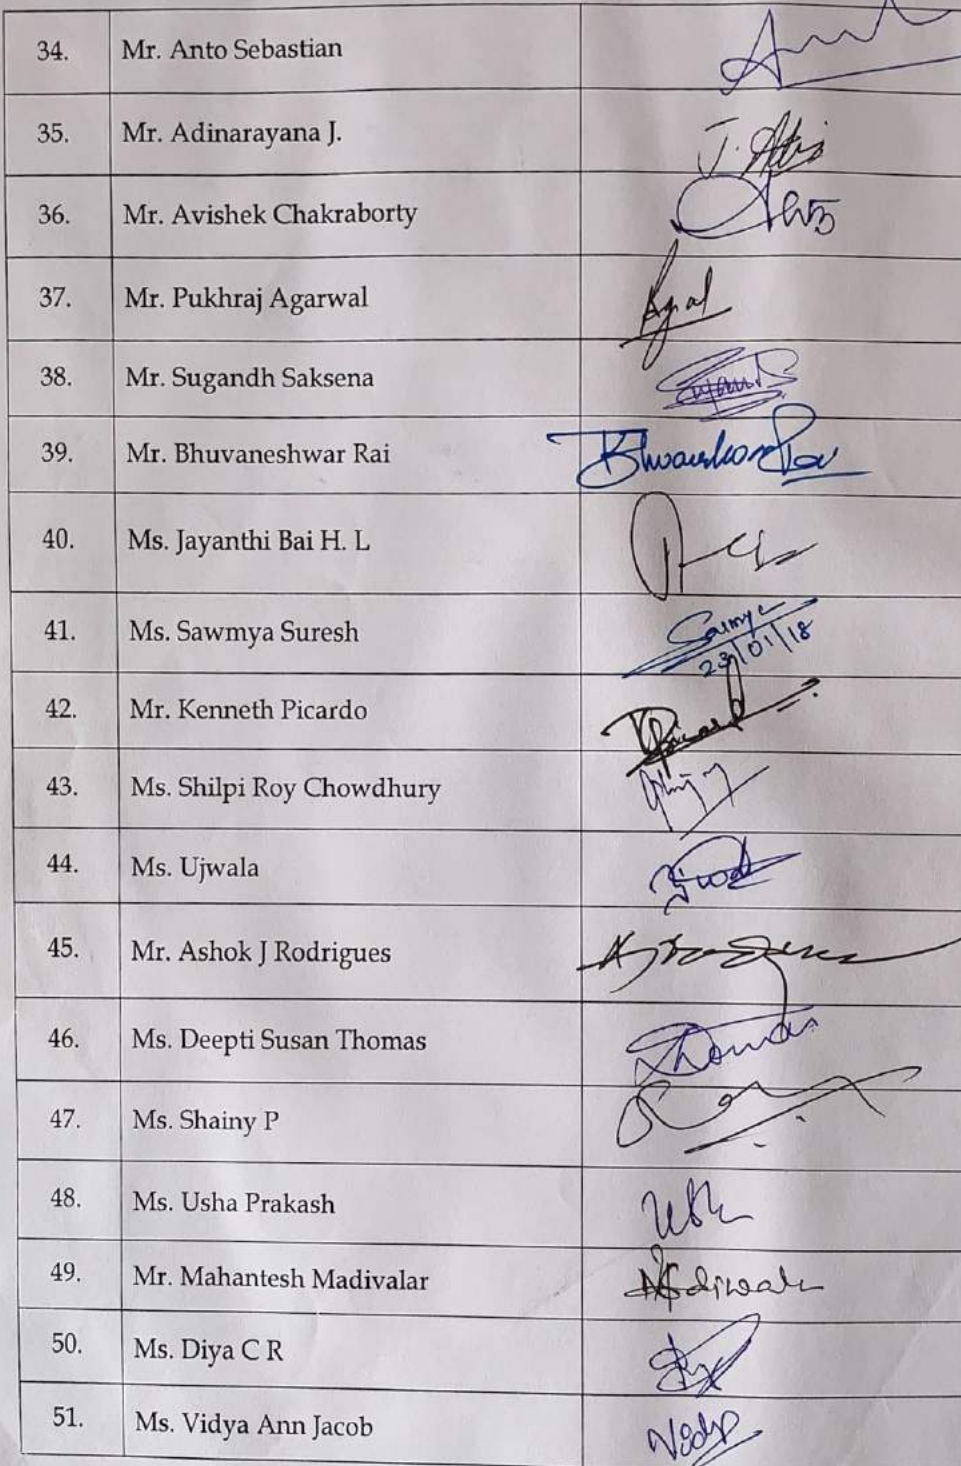 34. Mr. Anto Sebastian
35. Mr. Adinarayana J. J. Adi
36. Mr. Avishek Chakraborty
37. Mr. Pukhraj Agarwal
38. Mr. Sugandh Saksena
39. Mr. Bhuvaneshwar Rai
40. Ms. Jayanthi Bai H. L
41. Ms. Sawmya Suresh Sawmya
23/01/18
42. Mr. Kenneth Picardo
43. Ms. Shilpi Roy Chowdhury
44. Ms. Ujwala
45. Mr. Ashok J Rodrigues
46. Ms. Deepti Susan Thomas Thomas
47. Ms. Shainy P
48. Ms. Usha Prakash Usha
49. Mr. Mahantesh Madivalar
50. Ms. Diya C R
51. Ms. Vidya Ann Jacob Vidya